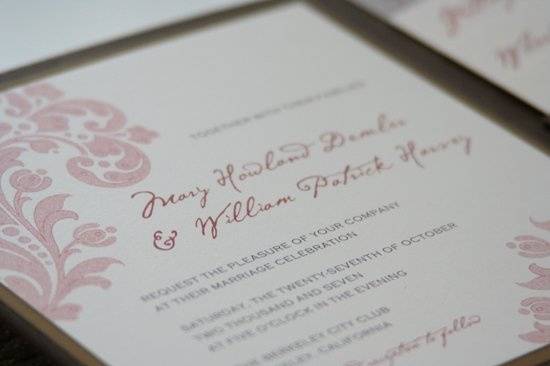 TOGETHER WITH THEIR FAMILIES
Mary Howland Demler
& William Patrick Harvey
REQUEST THE PLEASURE OF YOUR COMPANY
AT THEIR MARRIAGE CELEBRATION
SATURDAY, THE TWENTY-SEVENTH OF OCTOBER
TWO THOUSAND AND SEVEN
AT FIVE O'CLOCK IN THE EVENING
BERKELEY CITY CLUB
CALIFORNIA
to follow